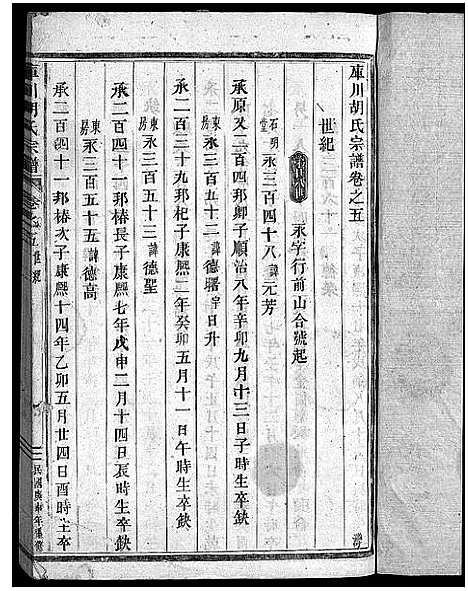 庫川胡氏宗譜卷之五
世紀
永字行前山合號起
石明堂 永三百四十八諱元芳
承原又二百四郎卿子順治八年辛卯九月十三日子時生卒缺
東房 永三百五十二諱德曙字日升
承二百三十九邦杞子康熙二年癸卯五月十一日午時生卒缺
東房 永三百五十三諱德聖
承二百四十一邦椿長子康熙七年戊申二月十四日辰時生卒缺
東房 永三百五十五諱德高
承二百四十一邦椿次子康熙十四年乙卯五月廿四日酉時生卒
庫川胡氏宗譜
卷之五
世系